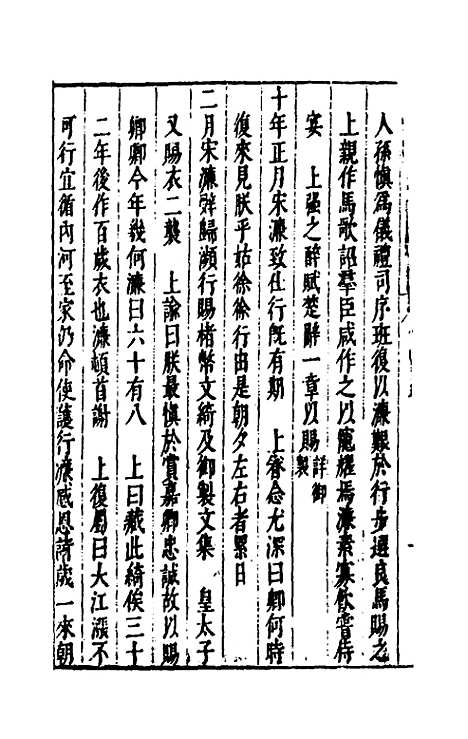 人孫慎為儀禮司序班復以濂艱於行步選良馬賜之
上親作馬歌詔羣臣咸作之以寵耀焉濂素寡飲嘗侍
宴　上强之醉賦楚辭一章以賜詳御製
十年正月宋濂致仕行既有期　上眷念尤深曰卿何時
復來見朕乎姑徐徐行由是朝夕左右者累日
二月宋濂辭歸瀕行賜楮幣文綺及御製文集　皇太子
又賜衣二襲　上諭曰朕最慎於賞嘉卿忠誠故以賜
卿卿今年幾何濂曰六十有八　上曰藏此綺俟三十
二年後作百歲衣也濂頓首謝　上復屬曰大江漲不
可行宜循內河至家仍命使護行濂感恩請歲一來朝